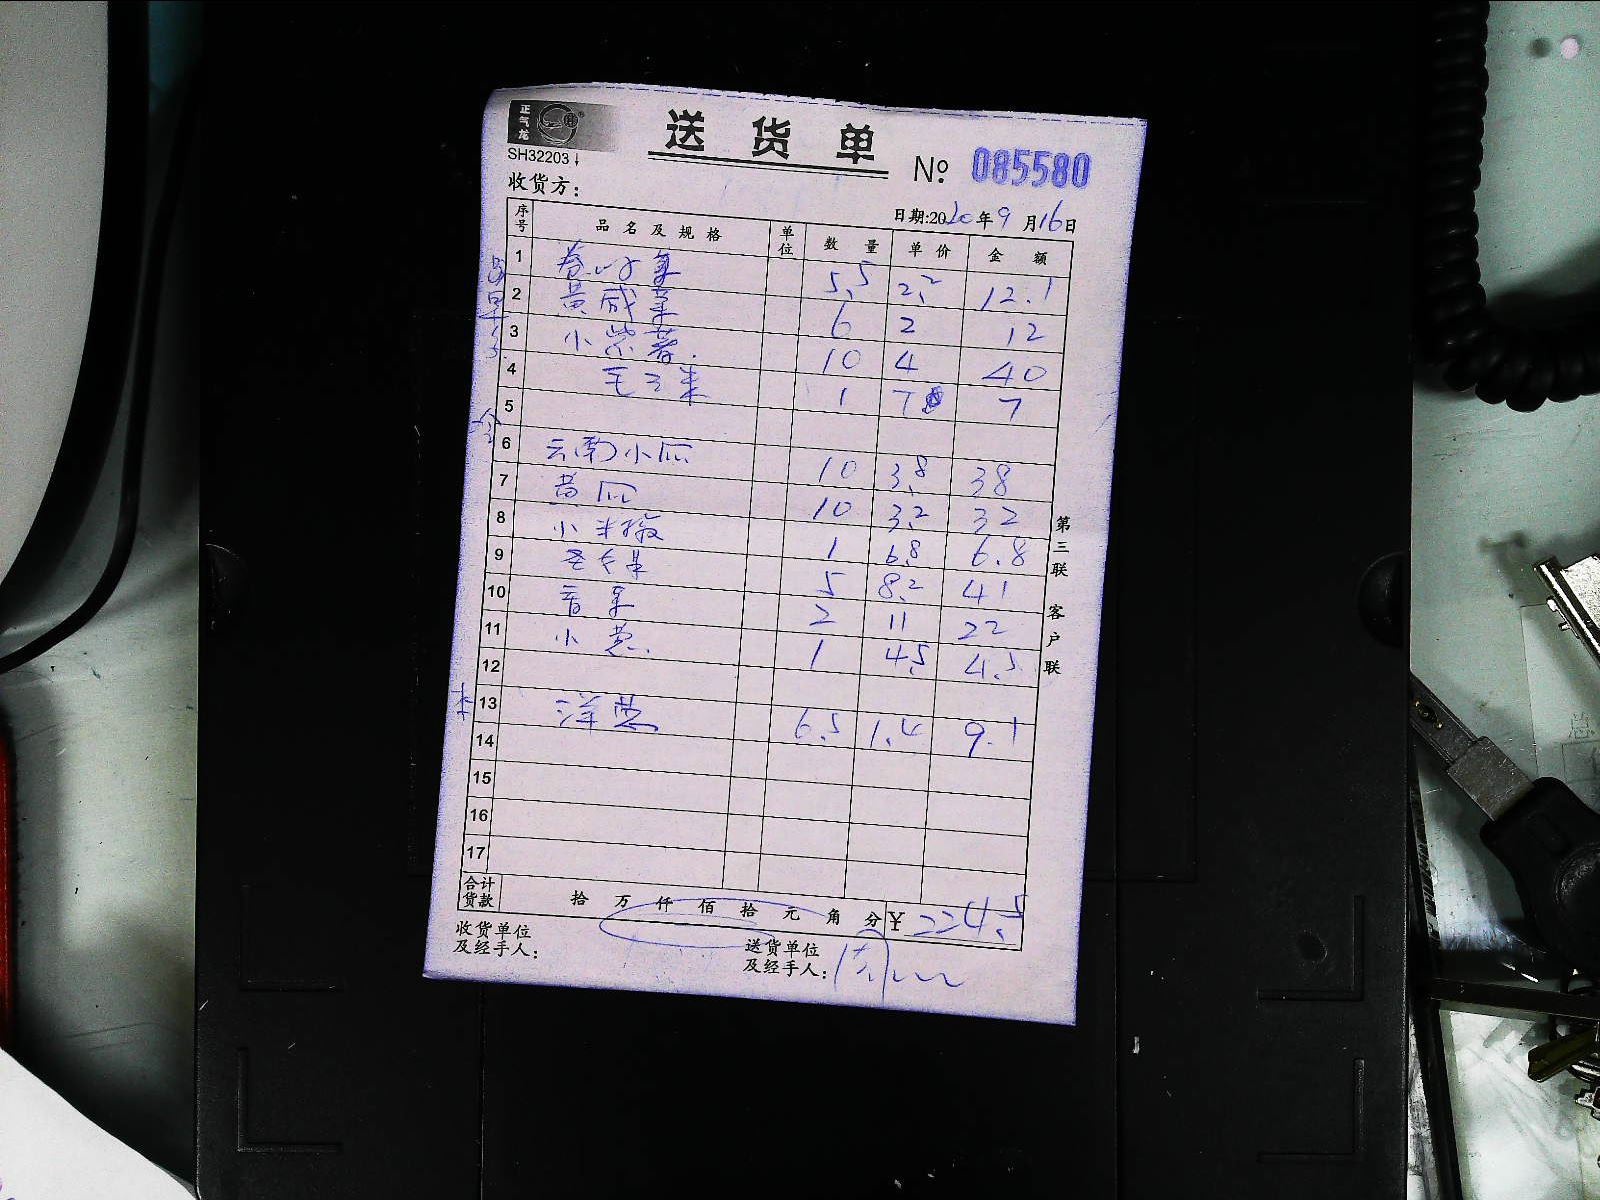 正气龙
送货单
SH32203
№ 085580
收货方：
日期:2020年9月16日
序号 品名及规格 单位 数量 单价 金额
1 5.5 2.2 12.1
2 6 2 12
3 小紫薯 10 4 40
4 毛豆米 1 7 7
5
6 云南小瓜 10 3.8 38
7 黄瓜 10 3.2 32
8 小米椒 1 6.8 6.8
9 5 8.2 41
10 香菜 2 11 22
11 小葱 1 4.5 4.5
12
13 洋葱 6.5 1.4 9.1
14
15
16
17
合计货款 拾 万 仟 佰 拾 元 角 分 ¥ 224.5
收货单位及经手人：
送货单位及经手人：
第三联 客户联